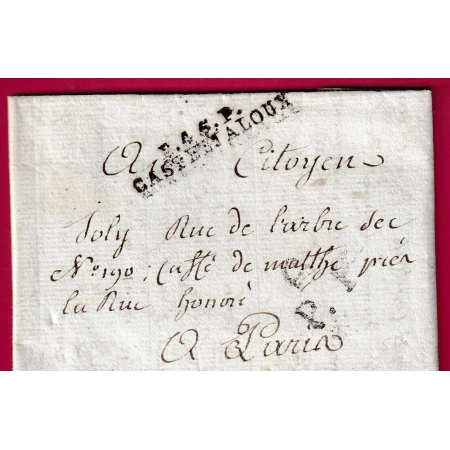 P.45.P.
CASTELJALOUX
Au Citoyen
Joly Rue de l'arbre sec
No. 190, Caffé de malthe près
la Rue honoré
P. P.
A Paris